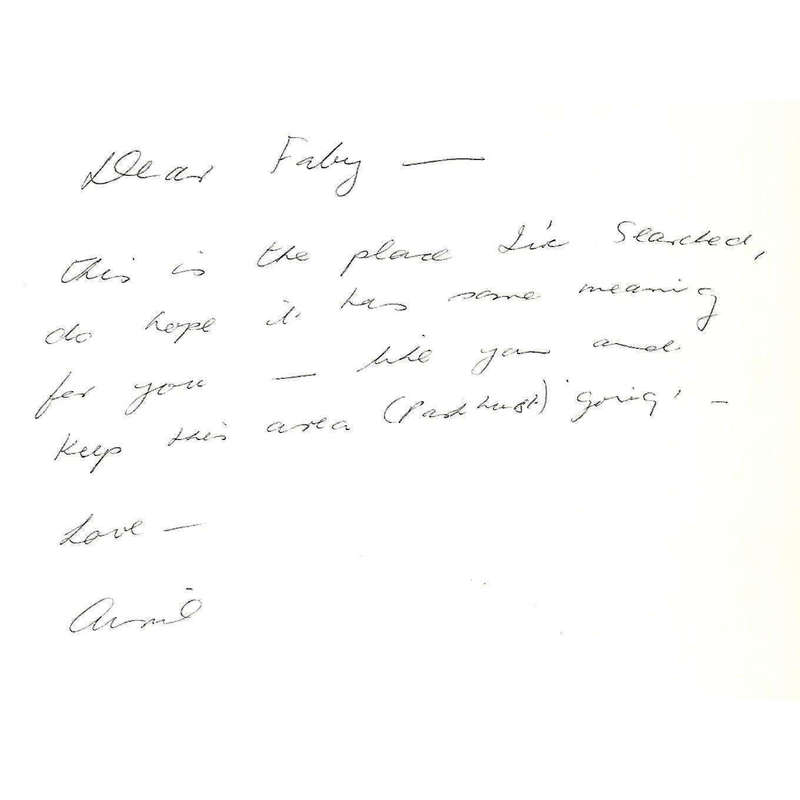 Dear Faby —
This is the place I've searched,
do hope it has some meaning
for you — like you and
keep this area (Parkhurst) 'going' —
Love —